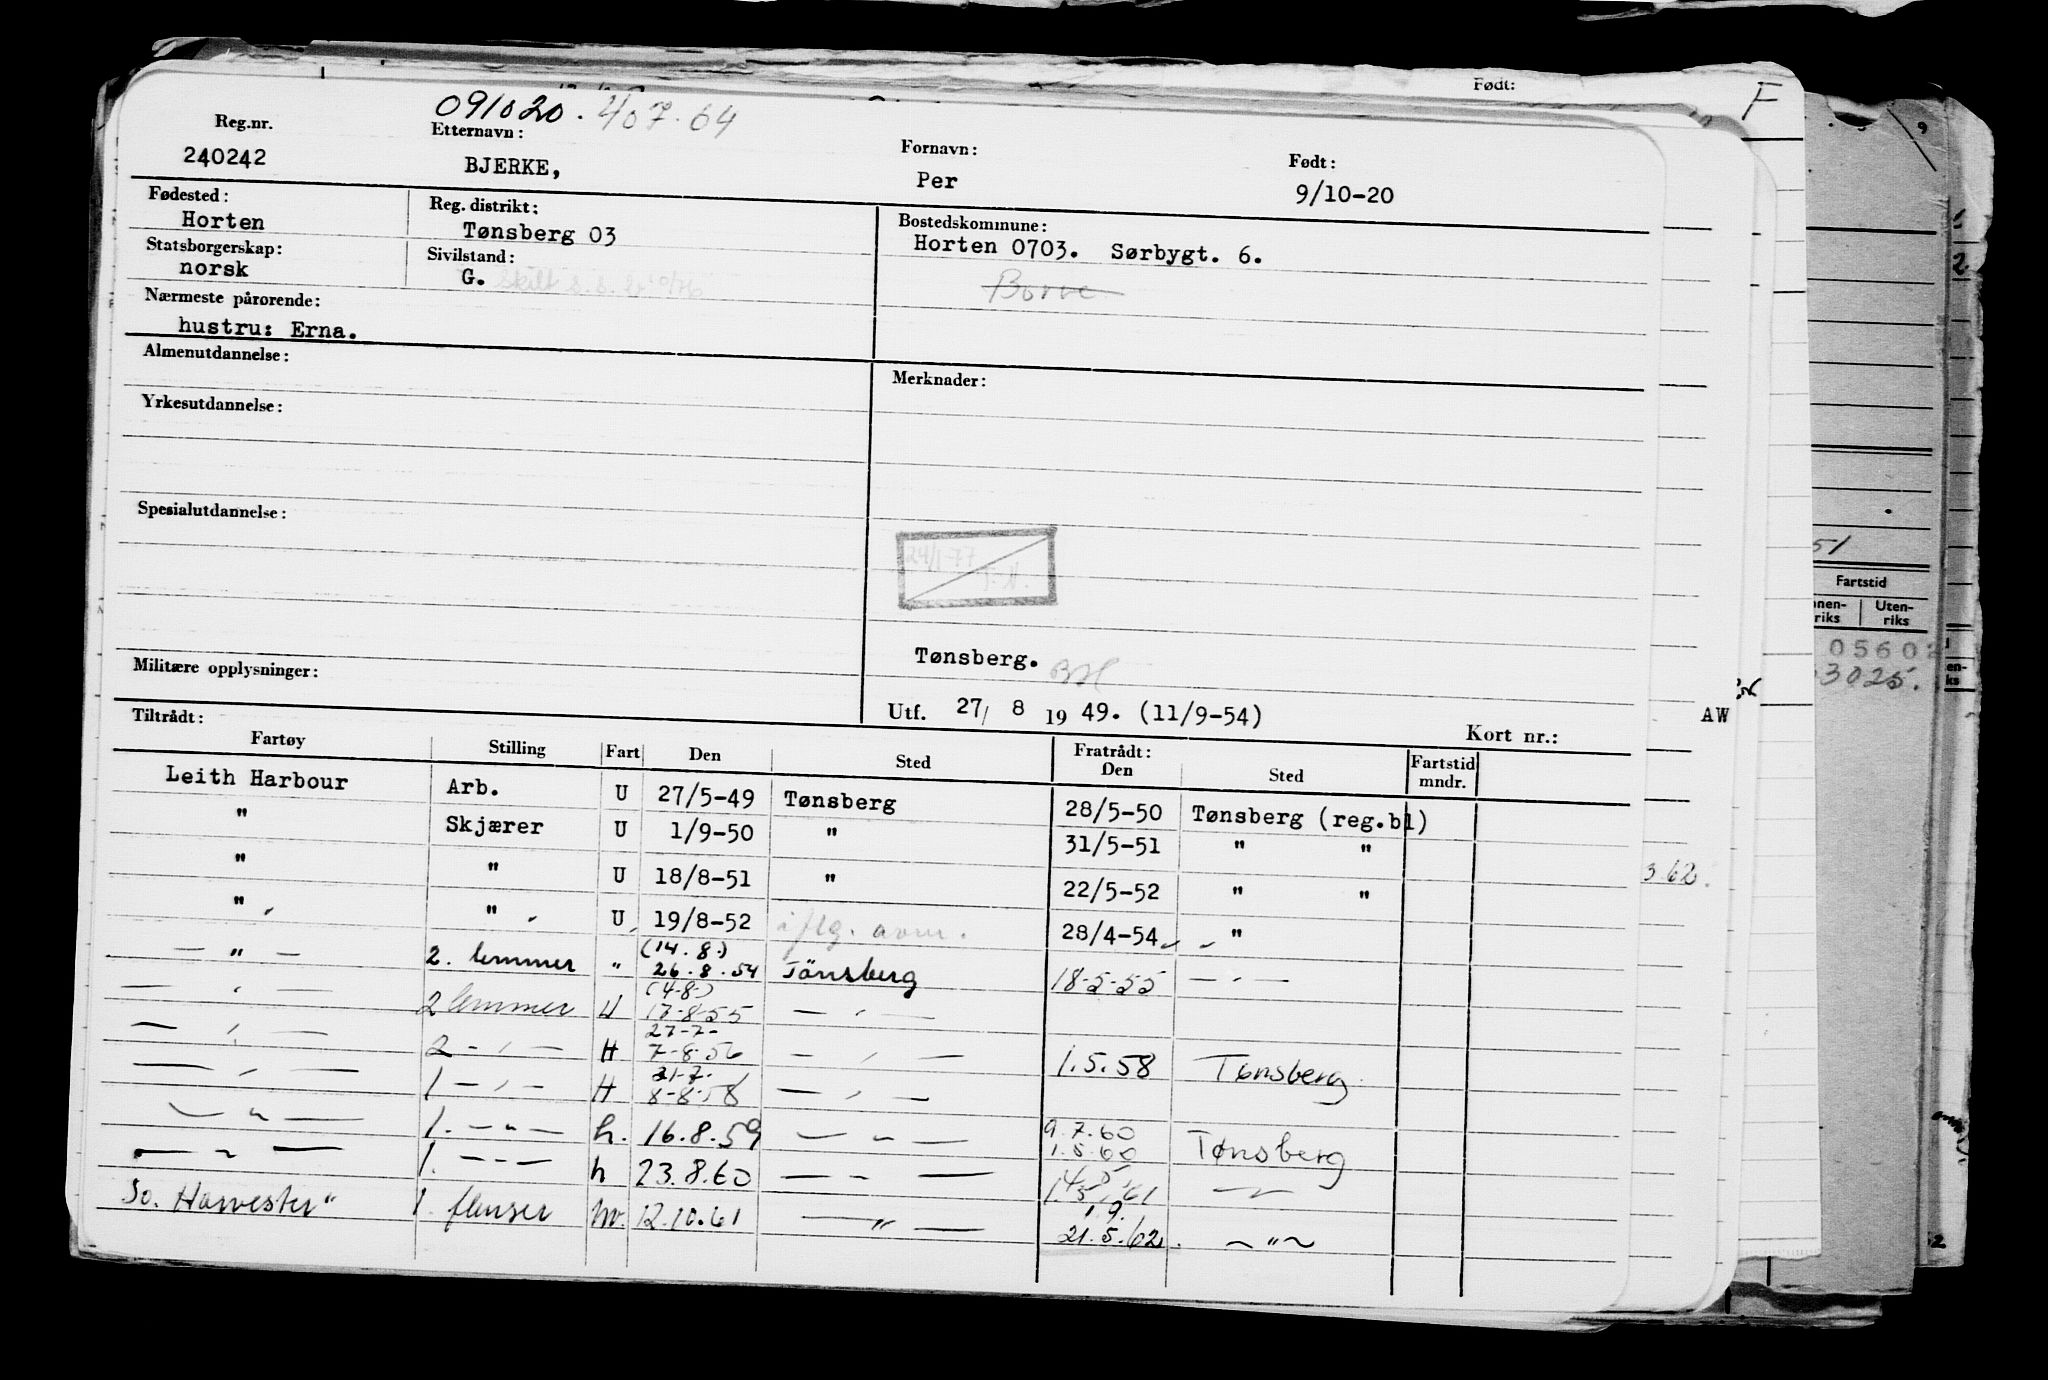 Født:
F
091020. 407.64
Reg.nr.
Etternavn:
Fornavn:
Født:
240242
BJERKE,
Per
9/10-20
Fødested:
Reg. distrikt:
Bostedskommune:
Horten
Tønsberg 03
Horten 0703. Sørbygt. 6.
Statsborgerskap:
Sivilstand:
norsk
G.
Borre
Nærmeste pårørende:
hustru: Erna.
Almenutdannelse:
Merknader:
Yrkesutdannelse:
Spesialutdannelse:
24/1-77
Militære opplysninger:
Tønsberg.
Utf. 27/ 8 19 49. (11/9-54)
Kort nr.:
AW
Tiltrådt:
Fratrådt:
Fartøy Stilling Fart Den Sted Den Sted Fartstid mndr.
Leith Harbour Arb. U 27/5-49 Tønsberg 28/5-50 Tønsberg (reg.bl)
" Skjærer U 1/9-50 " 31/5-51 " "
" " U 18/8-51 " 22/5-52 " "
" " U 19/8-52 iflg. avm. 28/4-54 "
(14.8.)
— " — 2. lemmer " 26.8.54 Tönsberg 18-5-55 — " —
(4-8-)
— " — 2 lemmer U 17-8-55 — " —
27-7-
— " — 2 — " — H 7-8-56 — " — 1.5.58 Tønsberg
31-7-
— " — 1 — " — H 8-8-58 — " —
9.7.60
— " — 1. — " — h. 16.8.59 — " — 1.5.60 Tønsberg
— " — 1. — " — h 23.8.60 — " — 61 — " —
1.9.
So. Harvester" 1. flenser hv. 12.10.61 — " — 21.5.62. — " —
51
Fartstid
Uten-
riks
riks
05602
3025.
362.